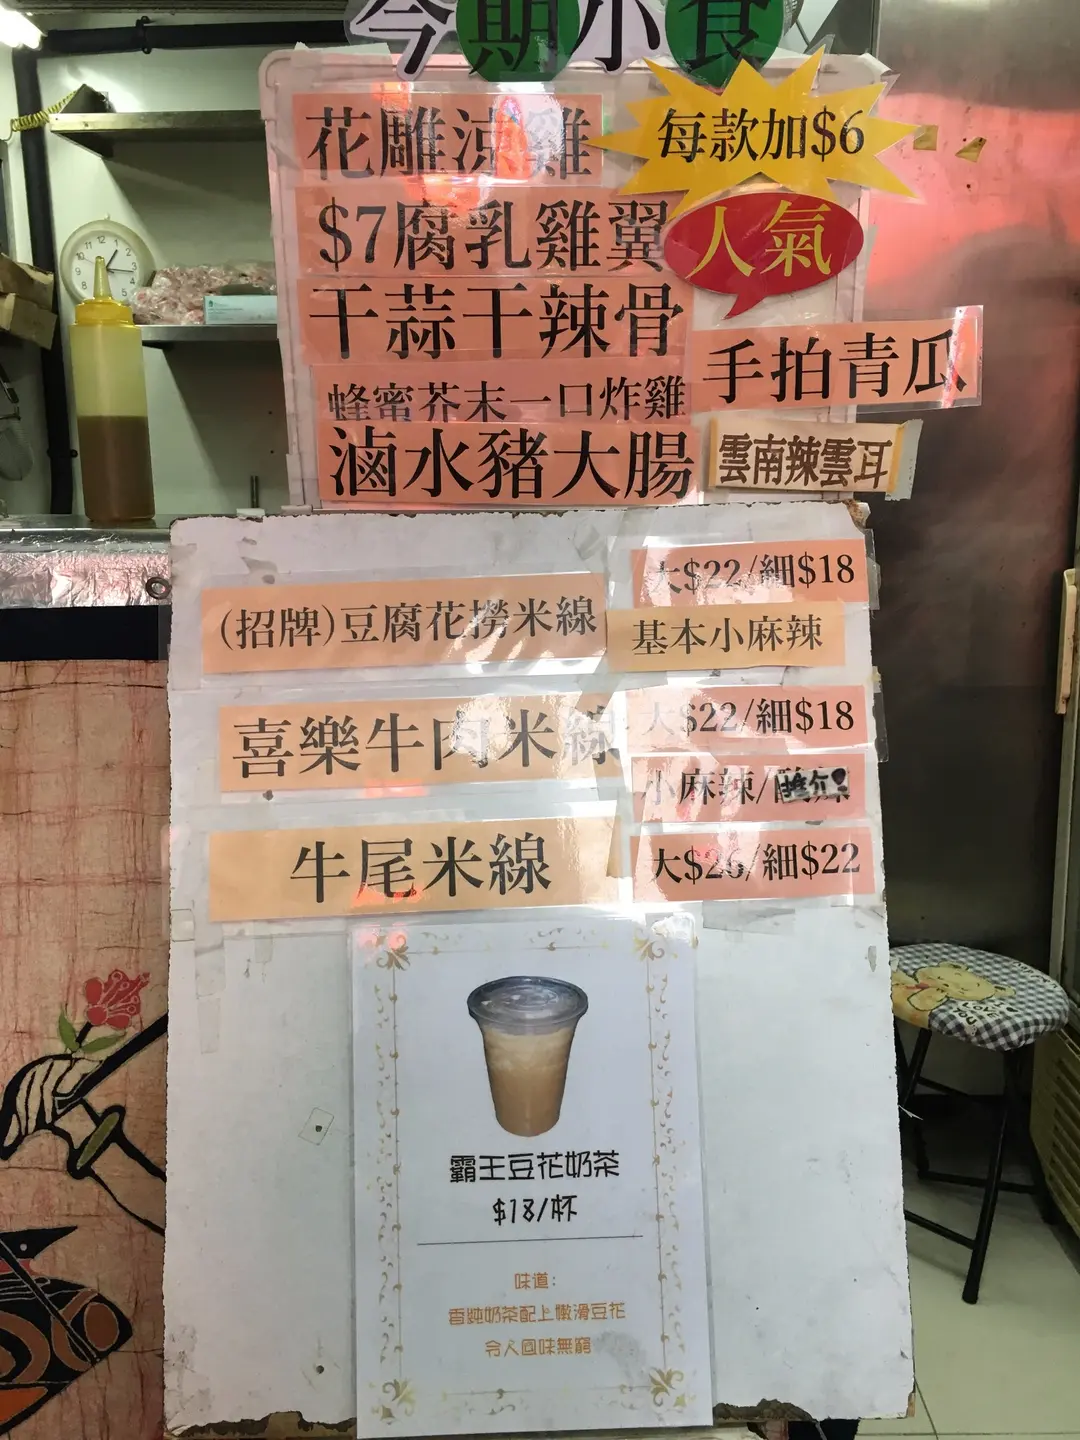 今期小食
花雕涼雞
每款加$6
$7腐乳雞翼
人氣
干蒜干辣骨
手拍青瓜
蜂蜜芥末一口炸雞
滷水豬大腸
雲南辣雲耳
大$22/細$18
(招牌)豆腐花撈米線
基本小麻辣
喜樂牛肉米線
大$22/細$18
小麻辣/
推介!
牛尾米線
大$26/細$22
霸王豆花奶茶
$18/杯
味道:
香純奶茶配上嫩滑豆花
令人回味無窮